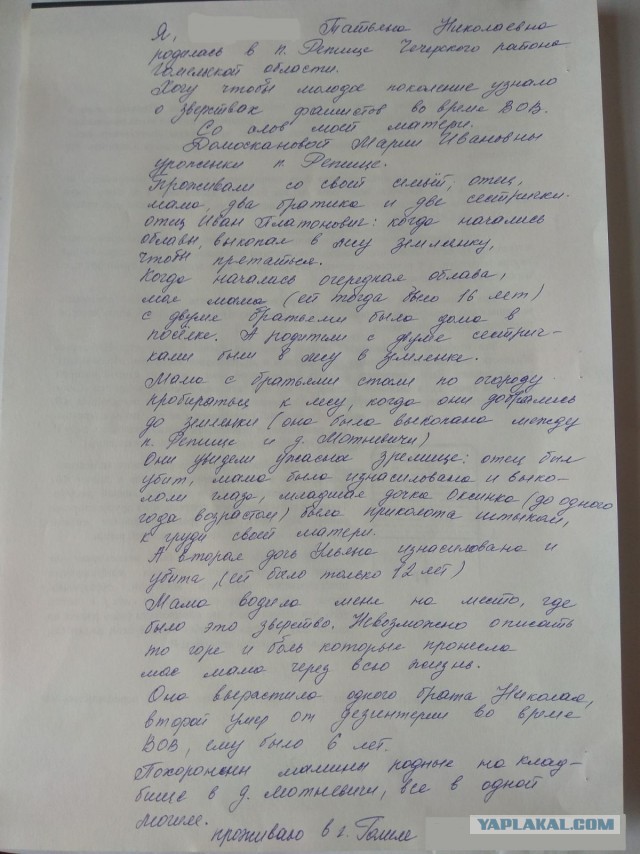 Я, Татьяна Николаевна
родилась в п. Репище Чечерского района
Гомельской области.
Хочу чтобы молодое поколение узнало
о зверствах фашистов во время ВОВ.
Со слов моей матери.
Домоскановой Марии Ивановны
уроженки п. Репище.
Проживали со своей семьёй, отец,
мама, два братика и две сестрички.
отец Иван Платонович: когда начались
облавы, выкопал в лесу землянку,
чтобы прятаться.
Когда началась очередная облава,
моя мама (ей тогда было 16 лет)
с двумя братьями была дома в
посёлке. А родители с двумя сестрич-
ками были в лесу в землянке.
Мама с братьями стали по огороду
пробираться к лесу, когда они добрались
до землянки (она была выкопана между
п. Репище и д. Мотневичи)
Они увидели ужасное зрелище: отец был
убит, мама была изнасилована и выко-
лоли глаза, младшая дочка Оксинка (до одного
года возрастом) была приколота штыком,
к груди своей матери.
А вторая дочь Ульяна изнасилована и
убита, (ей было только 12 лет)
Мама водила меня на место, где
было это зверство. Невозможно описать
то горе и боль которые пронесла
моя мама через всю жизнь.
Она вырастила одного брата Николая,
второй умер от дезинтерии во время
ВОВ, ему было 6 лет.
Похоронены мамины родные на клад-
бище в д. Мотневичи, все в одной
могиле.
проживаю в г. Гомеле
YAPLAKAL.COM